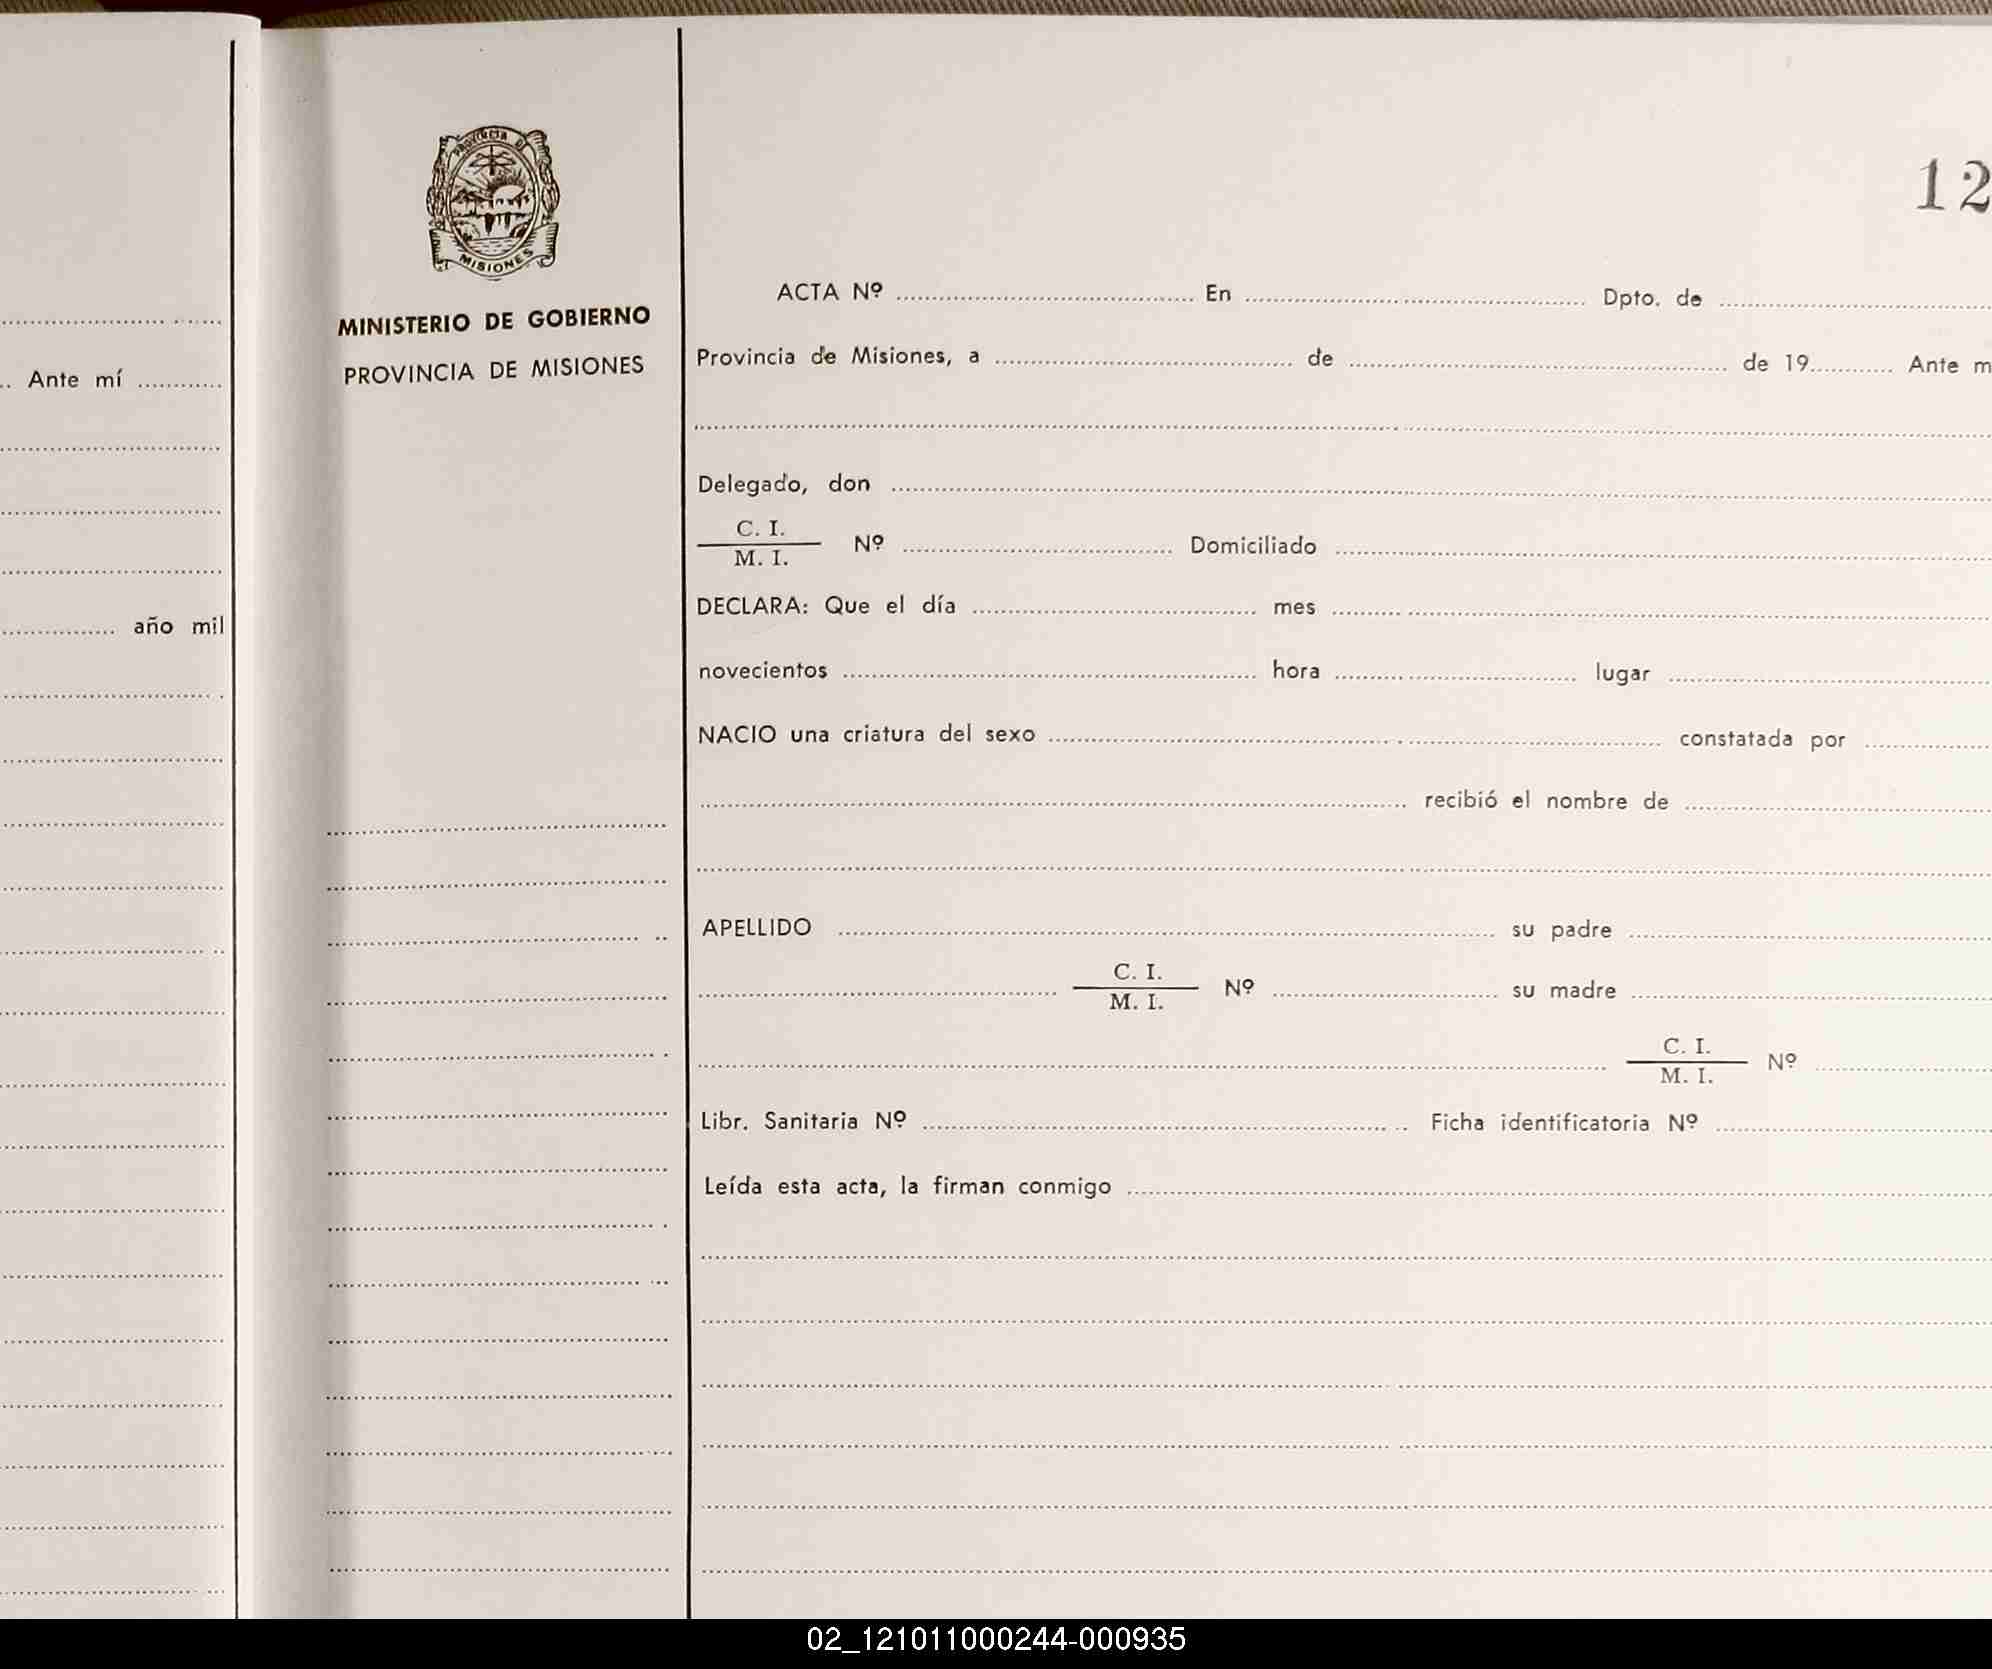 Ante mí
año mil
PROVINCIA DE
MISIONES
MINISTERIO DE GOBIERNO
PROVINCIA DE MISIONES
12
ACTA Nº ........ En ........ Dpto. de ........
Provincia de Misiones, a ........ de ........ de 19........ Ante m
Delegado, don ........
C. I.
M. I.
Nº ........ Domiciliado ........
DECLARA: Que el día ........ mes ........
novecientos ........ hora ........ lugar ........
NACIO una criatura del sexo ........ constatada por ........
........ recibió el nombre de ........
APELLIDO ........ su padre ........
C. I.
M. I.
Nº ........ su madre ........
C. I.
M. I.
Nº ........
Libr. Sanitaria Nº ........ Ficha identificatoria Nº ........
Leída esta acta, la firman conmigo ........
02_121011000244-000935